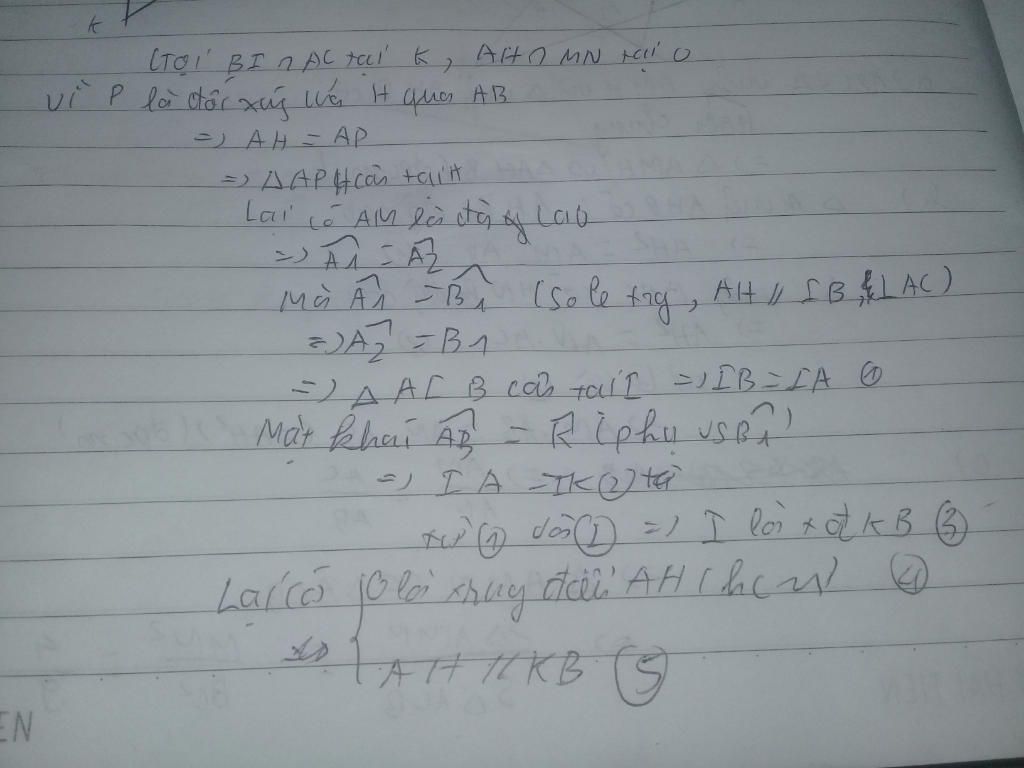 K
Gọi BI ∩ AC tại K, AH ∩ MN tại O
Vì P là đối xứng với H qua AB
=> AH = AP
=> ΔAPH cân tại H
Lại có AM là đường cao
=> A1 = A2
Mà A1 = B1 (so le trg, AH // IB, ⊥ AC)
=> A2 = B1
=> Δ AIB cân tại I => IB = IA ①
Mặt khác A3 = K (phụ vs B1)
=> IA = IK ②
từ ① và ② => I là t đ KB ③
Lại có O là trung điểm AH (hcn) ④
AH // KB ⑤
EN